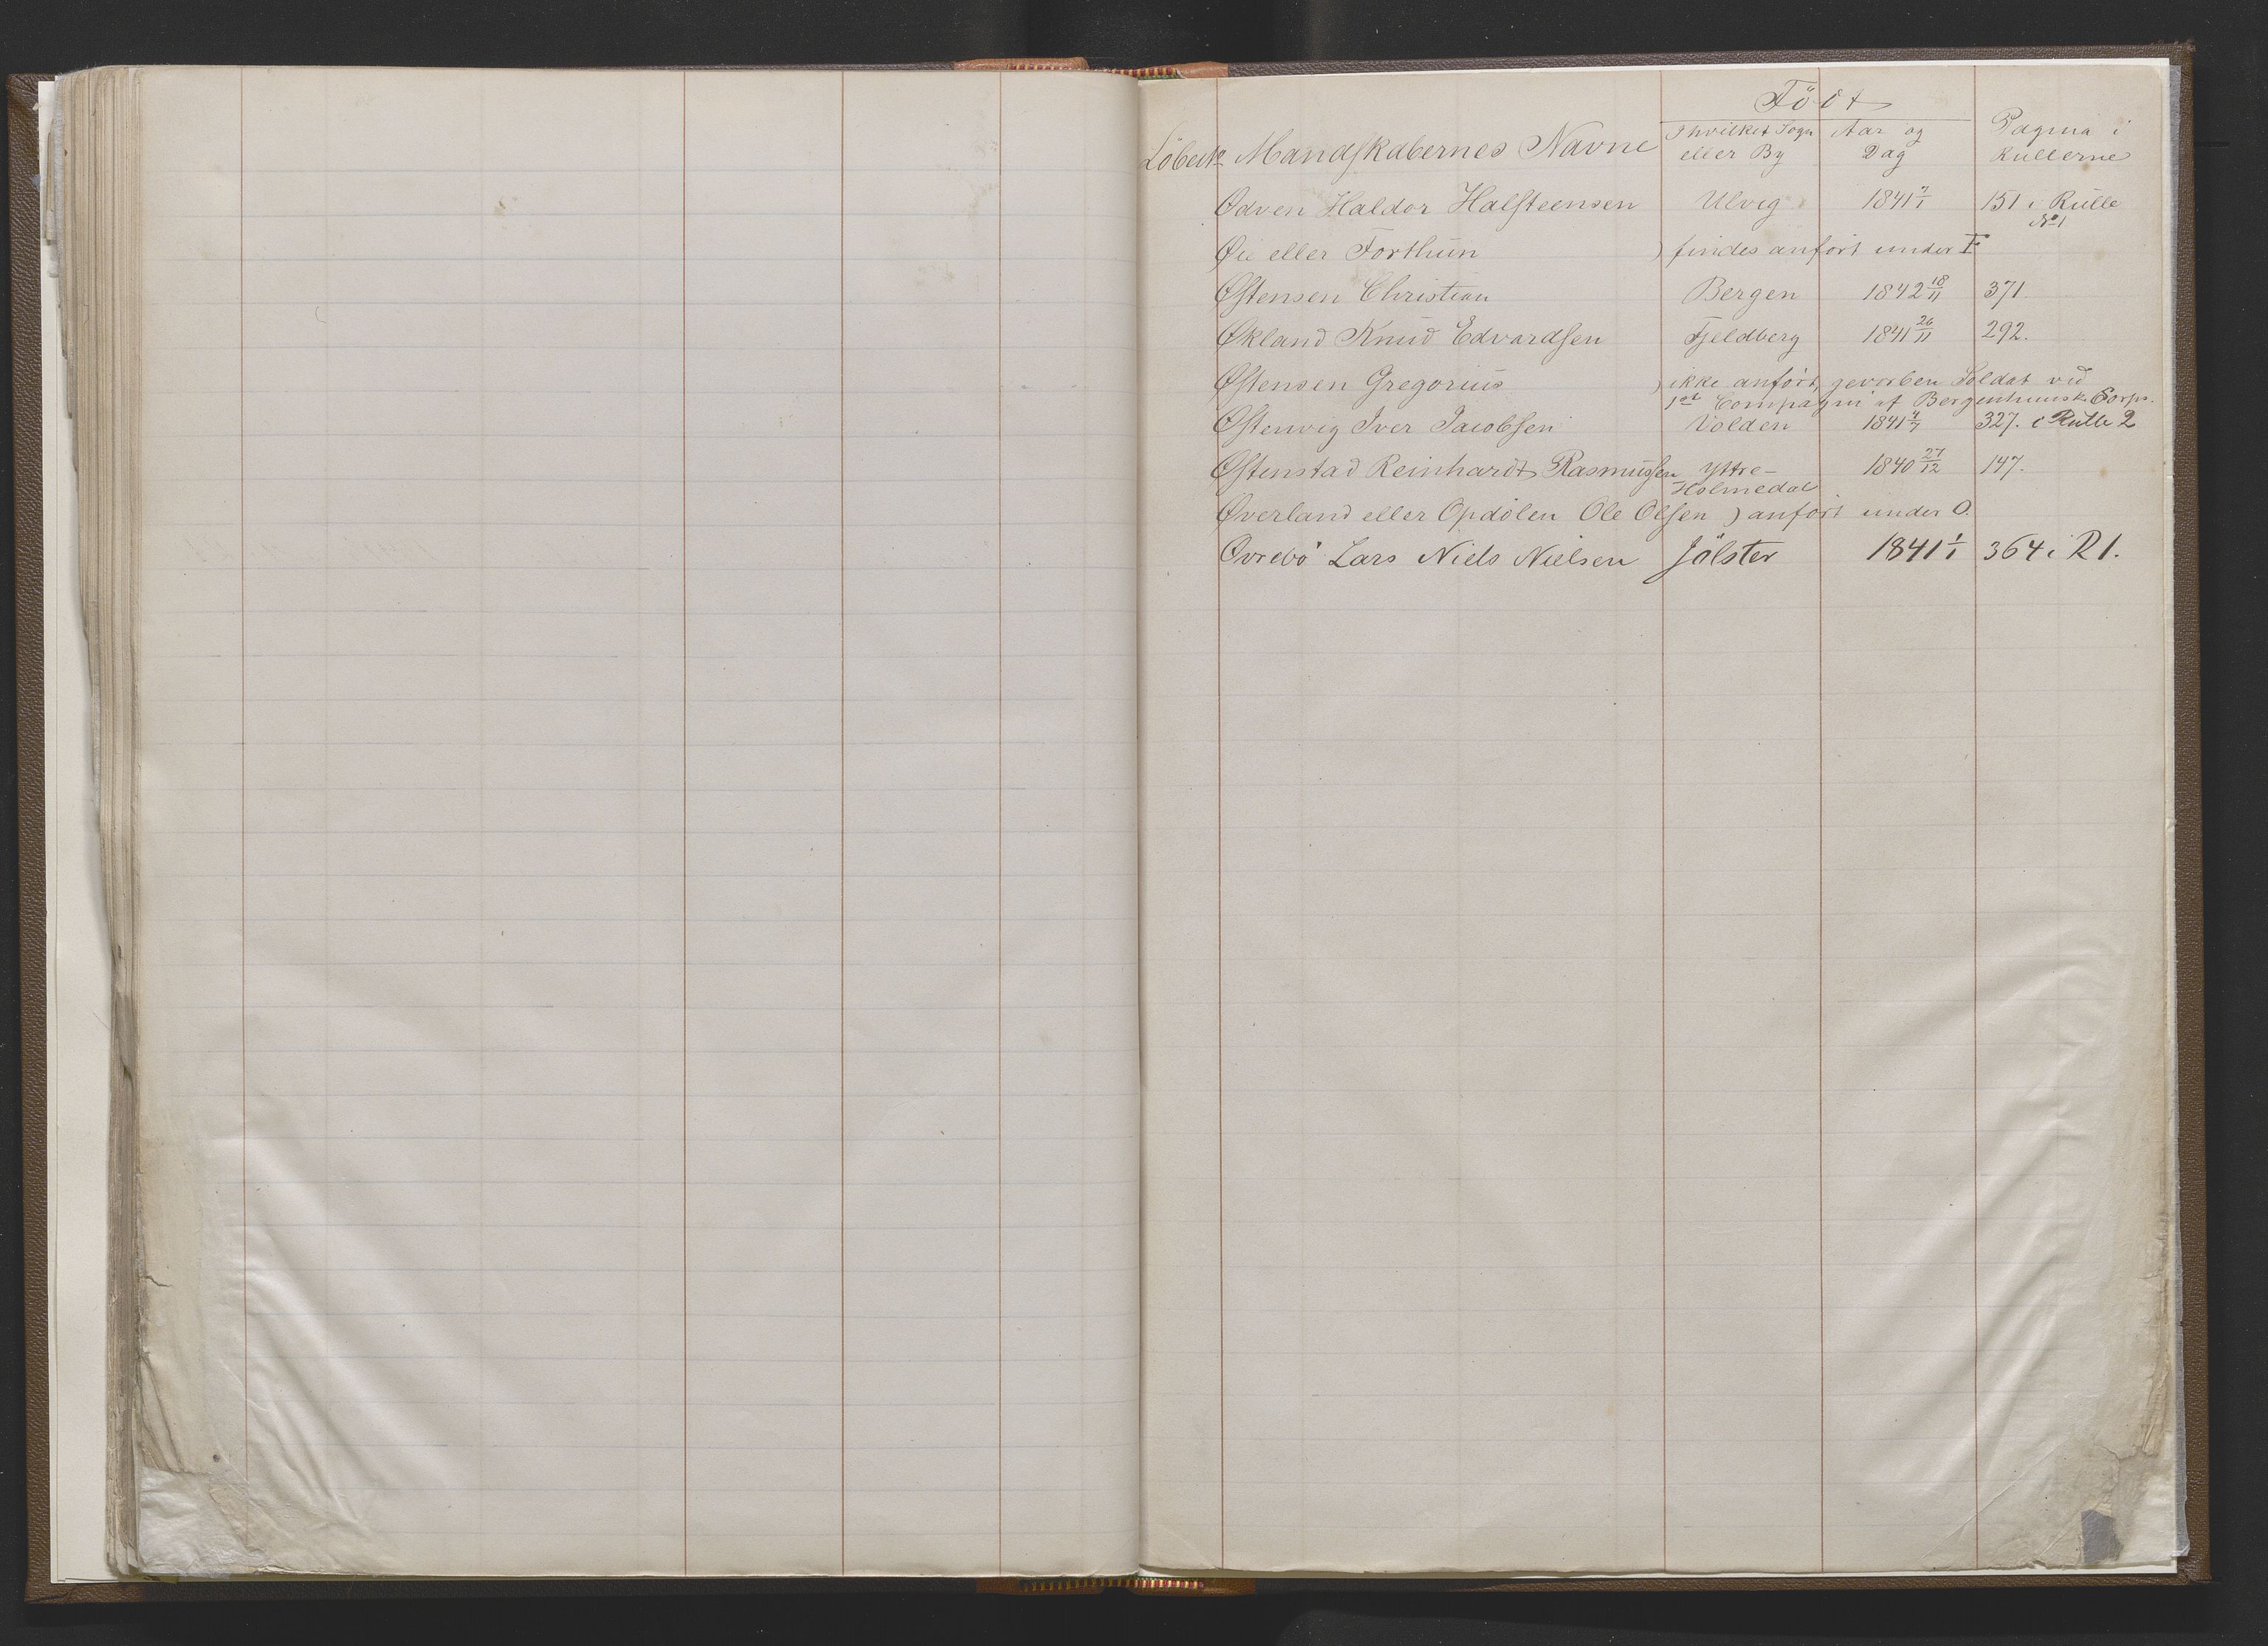 Födt
Löbe No Mandskabernes Navne I hvilket Sogn eller By Aar og Dag Pagina i Rullerne
Ødven Haldor Halsteensen Ulvig 1841 i Rulle No 1
Øie eller Forthun ) findes anført under F
Østensen Christian Bergen 1842 18/11 371
Økland Knud Edvardsen Fjeldberg 1841 26/11 292.
Østensen Gregorius ) ikke anført, gevorben Soldat ved
1st Compagni af Bergenhusiske Corps.
Østenvig Iver Jacobsen Volden 1841 4/7 327. i Rulle 2
Østenstad Reinhardt Rasmussen Yttre- 1840 27/12 147.
Holmedal
Øverland eller Opdølen Ole Olsen ) anført under O.
Øvrebö Lars Niels Nielsen Jölster 1841 1/1 364 i R 1.